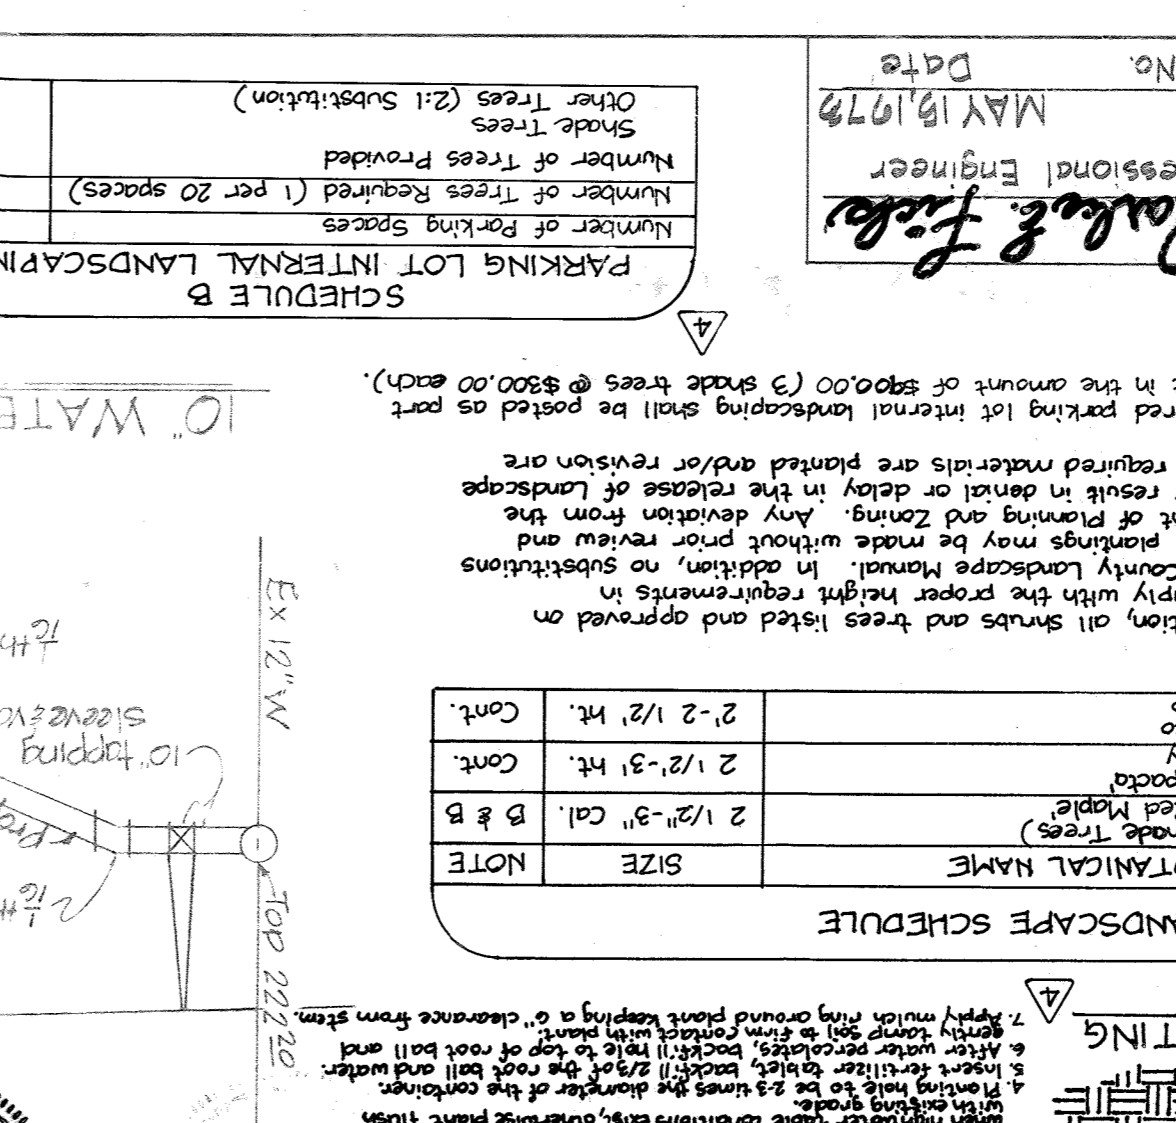 when high water table conditions exist, otherwise plant flush
with existing grade.
4. Planting hole to be 2-3 times the diameter of the container.
5. Insert fertilizer tablet, backfill 2/3 of the root ball and water.
6. After water percolates, backfill hole to top of root ball and
gently tamp soil to firm contact with plant.
7. Apply mulch ring around plant keeping a 6" clearance from stem.
TING
4
ANDSCAPE SCHEDULE
TANICAL NAME SIZE NOTE
hade Trees)
ed Maple' 2 1/2"-3" Cal. B & B
pacta'
y 2 1/2'-3' ht. Cont.
o
s 2'-2 1/2' ht. Cont.
tion, all shrubs and trees listed and approved on
mply with the proper height requirements in
county Landscape Manual. In addition, no substitutions
plantings may be made without prior review and
nt of Planning and Zoning. Any deviation from the
result in denial or delay in the release of Landscape
required materials are planted and/or revision are
red parking lot internal landscaping shall be posted as part
t in the amount of $900.00 (3 shade trees @ $300.00 each).
4
SCHEDULE B
PARKING LOT INTERNAL LANDSCAPIN
Number of Parking Spaces
Number of Trees Required (1 per 20 spaces)
Number of Trees Provided
Shade Trees
Other Trees (2:1 Substitution)
essional Engineer
MAY 15, 1973
No. Date
Top 222.20
1/16 th
Prop
10" tapping
sleeve & va
1/16 th
Ex 12" W
10" WATE